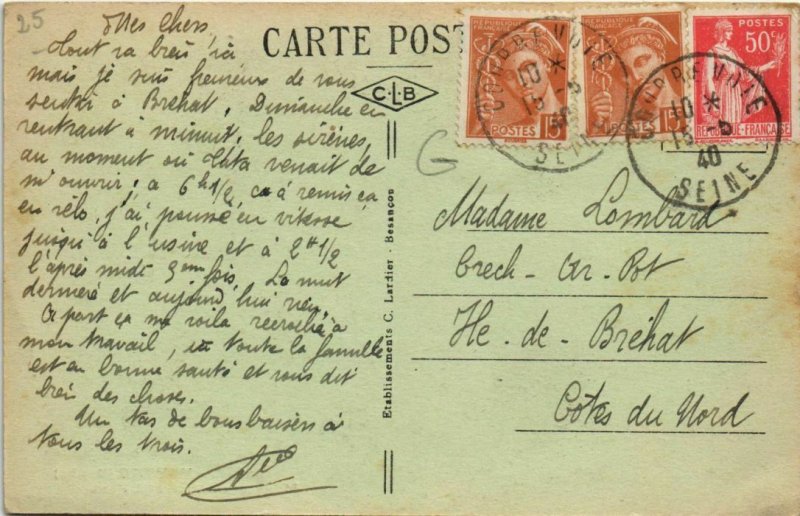 25
Mes Chers,
Tout va bien ici
mais je suis heureux de vous
sentir à Bréhat, Dimanche en
rentrant à minuit, les sirènes,
au moment où Tata venait de
m'ouvrir; a 6h1/2, ça a remis ça
en vélo, j'ai poussé en vitesse
jusqu'à l'usine et à 2H1/2
l'après midi 3ème fois. La nuit
dernière et aujourd'hui rien.
A part ça me voila, recroché à
mon travail, toute la famille
est en bonne santé et vous dit
bien des choses.
Un tas de bons baisers à
tous les trois.
CARTE POST
CLB
Etablissements C. Lardier - Besançon
G
REPUBLIQUE FRANÇAISE
POSTES
REPUBLIQUE FRANÇAISE
POSTES
POSTES
50c
REPUBLIQUE-FRANÇAISE
COURBEVOIE
10 *
15-5
40
SEINE
COURBEVOIE
10 *
15-5
40
SEINE
Madame Lombard
Crech-Ar-Pot
Ile-de-Bréhat
Côtes du Nord